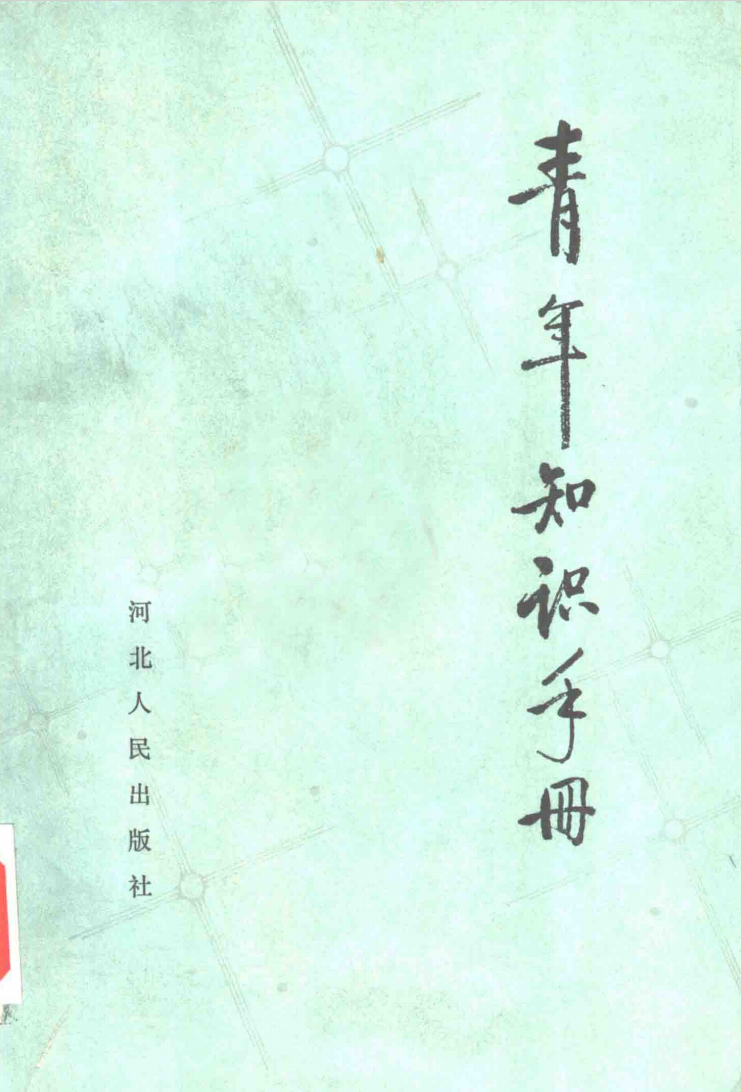 青年知识手冊
河北人民出版社